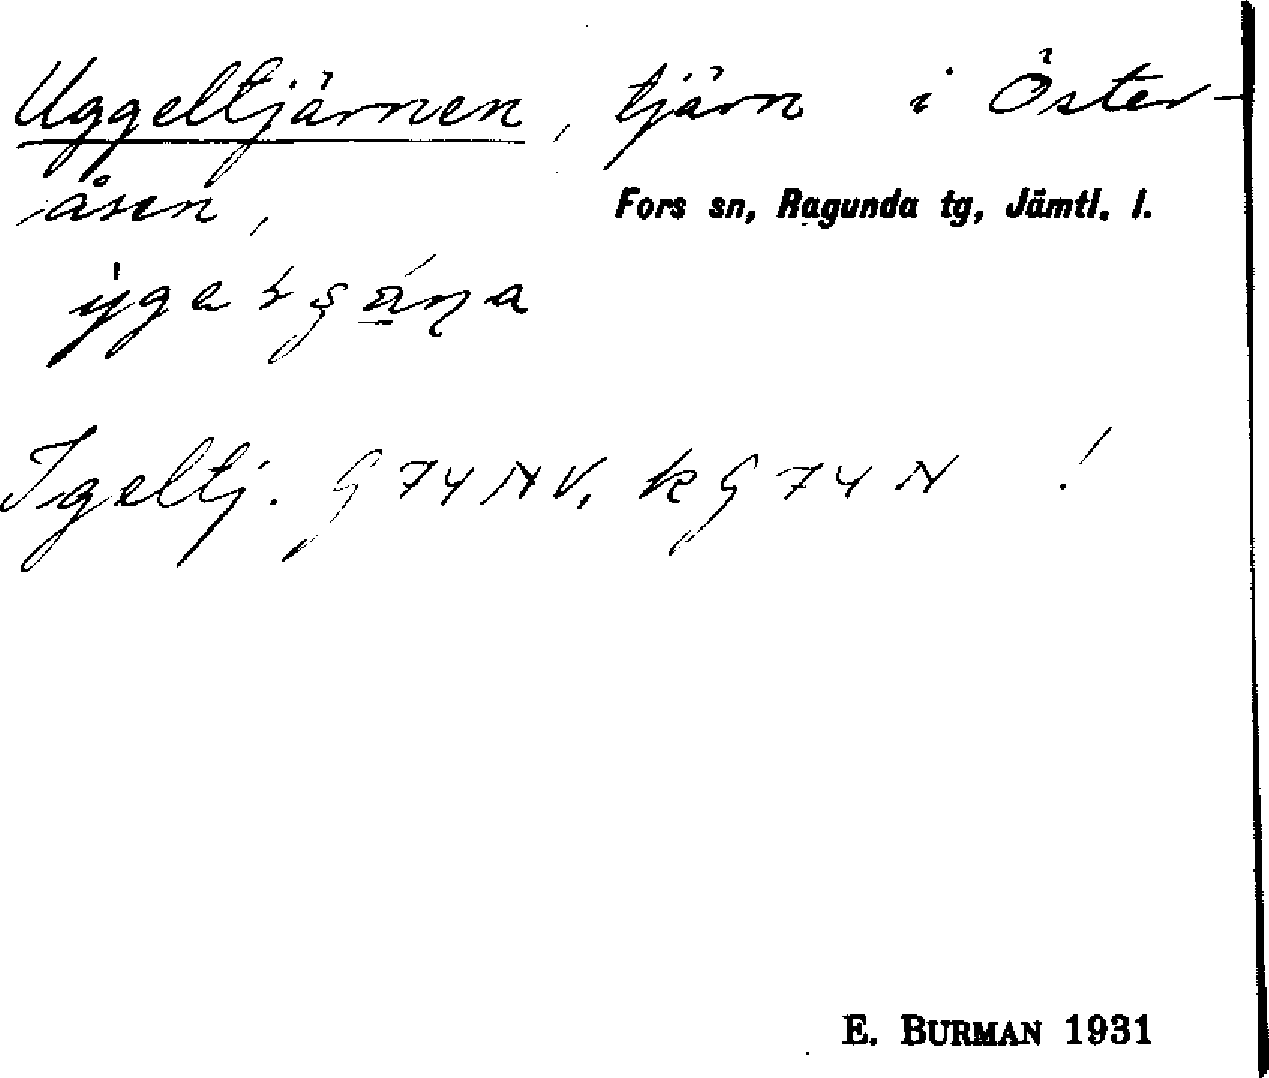 Uggeltjärnen, tjärn i Öster-
åsen,
Fors sn, Ragunda tg, Jämtl. l.
Igeltj. G 74 NV, k G 74 N !
E. BURMAN 1931